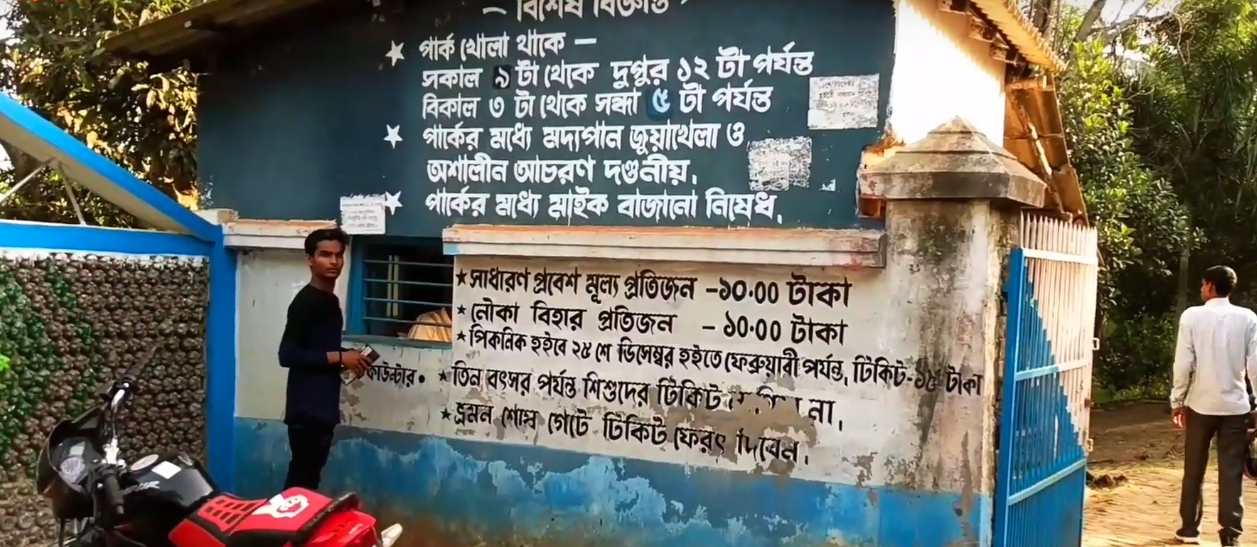 — বিশেষ বিজ্ঞপ্তি
★ পার্ক খোলা থাকে —
সকাল ৯ টা থেকে দুপুর ১২ টা পর্যন্ত
বিকাল ৩ টা থেকে সন্ধা ৫ টা পর্যন্ত
★ পার্কের মধ্যে মদ্যপান জুয়াখেলা ও
অশালীন আচরণ দণ্ডনীয়.
★ পার্কের মধ্যে মাইক বাজানো নিষেধ.
★ সাধারণ প্রবেশ মূল্য প্রতিজন -১০.০০ টাকা
★ নৌকা বিহার প্রতিজন - ১০.০০ টাকা
★ পিকনিক হইবে ২৫ শে ডিসেম্বর হইতে ফেব্রুয়ারী পর্যন্ত, টিকিট-১৫ টাকা
কাউন্টার •
★ তিন বৎসর পর্যন্ত শিশুদের টিকিট না.
★ ভ্রমন শেষে গেটে টিকিট ফেরৎ দিবেন.